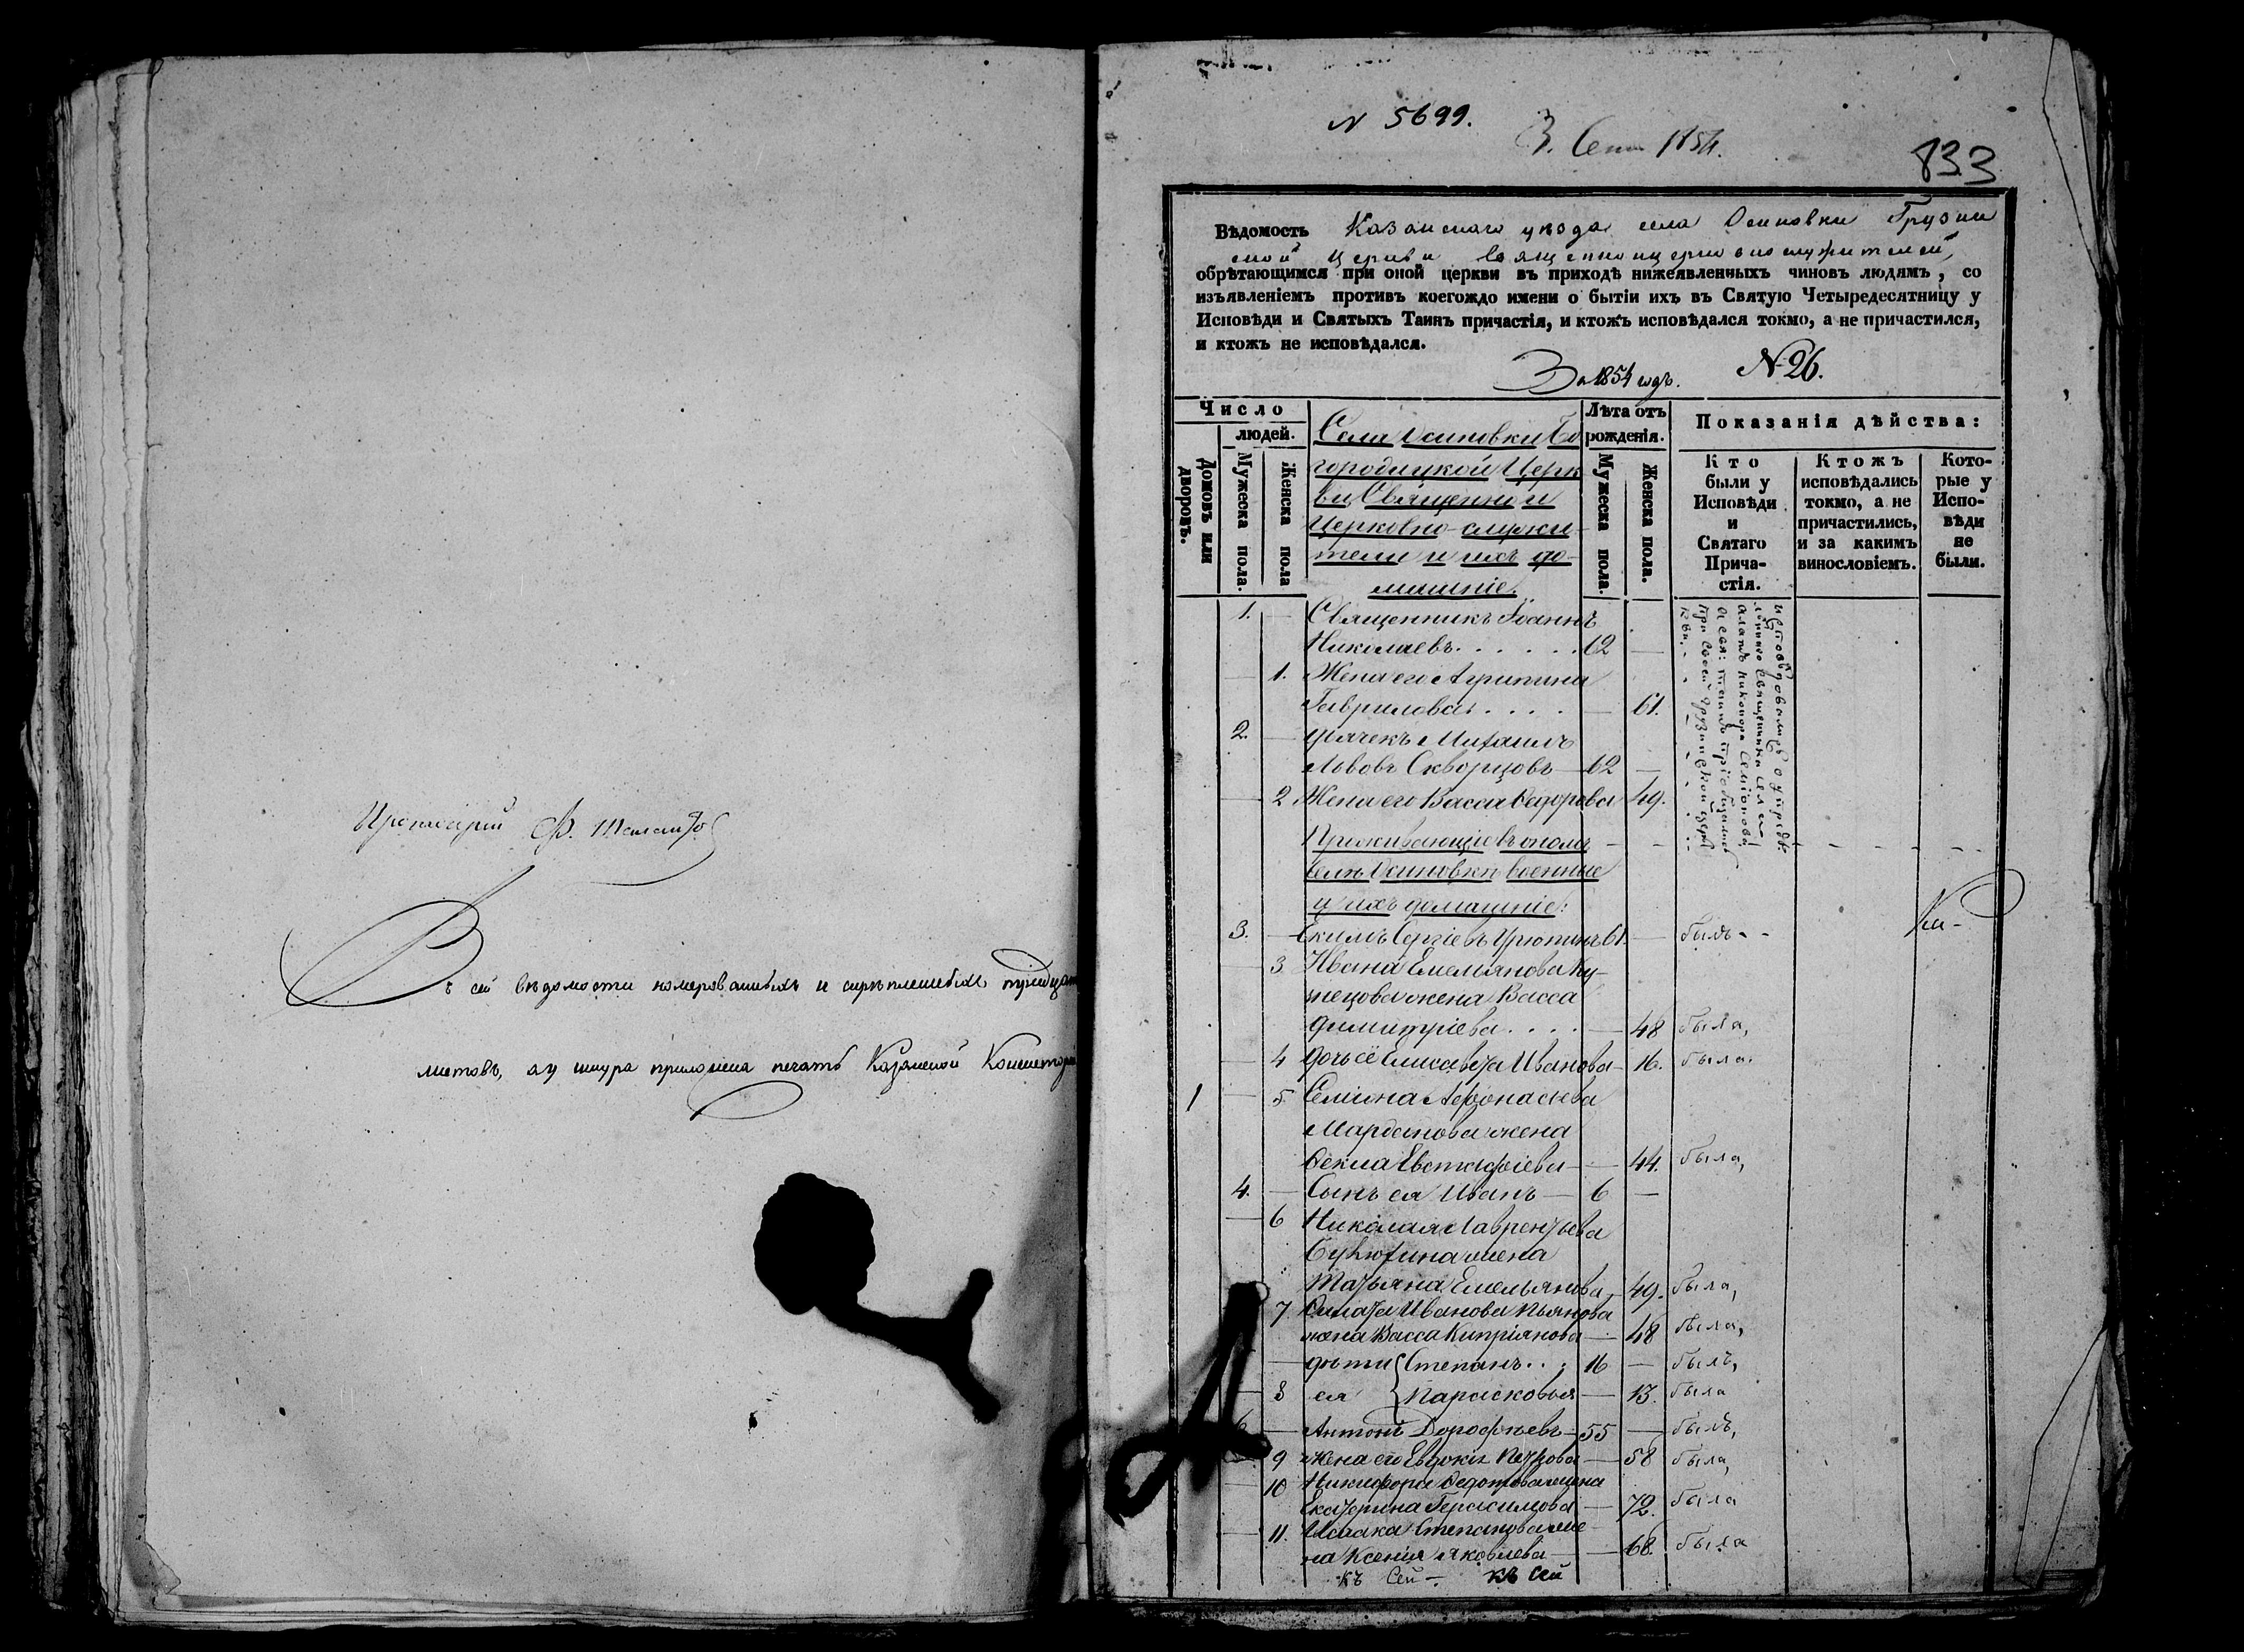 Протоіерей Ф.
Въ сей вѣдомости номерованныхъ и скрѣпленныхъ тридцать
листовъ, а у шнура приложена печать Казанской Консисторіи
N 5699.
3. Сен 1854.
833
Вѣдомость Казанскаго уѣзда села Осиновки Грузин
ской церкви Священноцерковнослужителей,
обрѣтающимся при оной церкви въ приходѣ нижеявленныхъ чиновъ людямъ, со
изъявленіемъ противъ коегождо имени о бытіи ихъ въ Святую Четыредесятницу у
Исповѣди и Святыхъ Таинъ причастія, и ктожъ исповѣдался токмо, а не причастился,
и ктожъ не исповѣдался.
За 1854 годъ. N 26.
Число
людей.
Домовъ или дворовъ.
Мужеска пола.
Женска пола
Села Осиновки Бо
городицкой Церк
ви Священно и
Церковно-служи
тели и ихъ до-
машніе.
Лѣта отъ
рожденія.
Мужеска пола.
Женска пола.
Показанія дѣйства:
Кто
были у
Исповѣди
и
Святаго
Прича-
стія.
Ктожъ
исповѣдались
токмо, а не
причастились,
и за какимъ
винословіемъ.
Кото-
рые у
Испо-
вѣди
не
были.
1. — Священникъ Іоаннъ
Николаевъ. . . . . . 62 —
— 1. Жена его Агрипина
Гаврилова . . . . — 61.
2. — Дьячекъ Михаилъ
Львовъ Скворцовъ — 62 —
— 2 Жена его Васса Ѳедорова 49.
Исповѣдовались у
Священника
Никанора Семіонова
а Свя: таинъ пріобщались
при своей Грузинской цер
кви.
Проживающіе въ ономъ
селѣ Осиновкѣ военные
и ихъ домашніе:
3. — Екимъ Сергіевъ Урютинъ 61. — былъ - -
— 3 Ивана Емельянова Ку-
знецова жена Васса
Димитріева . . . . — 48 была,
— 4 Дочь её Елисавета Иванова — 16. была.
1 — 5. Семіона Афонасьева
Марданова жена
Ѳекла Евстафіева — — 44. была,
4. — Сынъ ея Иванъ — 6 —
— 6 Николая Лаврентьева
жена
Татьяна Емельянова, 49. была,
7 Ивановa Пьянова
жена Васса Кипріянова — 48 была,
— дѣти Степанъ . . ; 16 — былъ,
— 8 ея Парасковья — 13. была
6. — Антонъ Дорофѣевъ — 55 — былъ,
9 Жена его Евдокія Петрова — 58 была,
— 10 Никифора Ѳедотова жена
Екатерина Герасимова — 72. была
— 11. Исаака Степанова же
на Ксенія Яковлева — — 68. была
къ сей —. къ сей